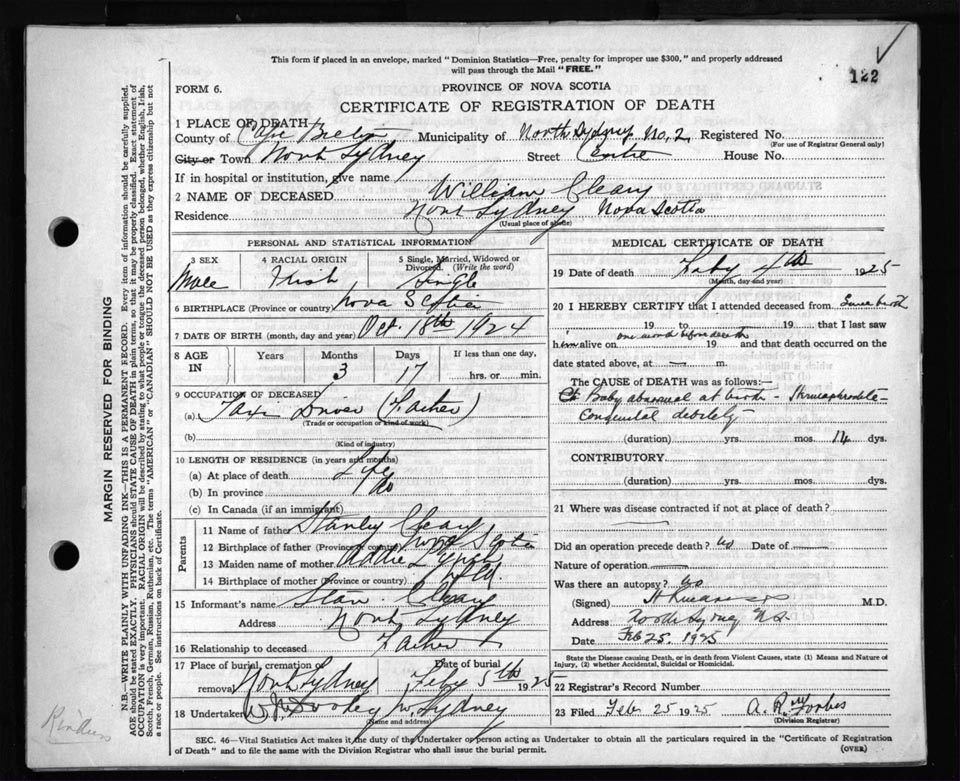 This form if placed in an envelope, marked "Dominion Statistics—Free, penalty for improper use $300," and properly addressed
will pass through the Mail "FREE."
122
FORM 6.
PROVINCE OF NOVA SCOTIA
CERTIFICATE OF REGISTRATION OF DEATH
1 PLACE OF DEATH
County of Cape Breton Municipality of North Sydney No. 2 Registered No.
(For use of Registrar General only)
City or Town North Sydney Street Centre House No.
If in hospital or institution, give name
2 NAME OF DECEASED William Cleary
Residence North Sydney Nova Scotia
(Usual place of abode)
PERSONAL AND STATISTICAL INFORMATION
3 SEX Male
4 RACIAL ORIGIN Irish
5 Single, Married, Widowed or Divorced. (Write the word) Single
6 BIRTHPLACE (Province or country) Nova Scotia
7 DATE OF BIRTH (month, day and year) Oct. 18th 1924
8 AGE IN Years Months 3 Days 17 If less than one day, hrs. or min.
9 OCCUPATION OF DECEASED
(a) Taxi Driver (Father)
(Trade or occupation or kind of work)
(b)
(Kind of industry)
10 LENGTH OF RESIDENCE (in years and months)
(a) At place of death Life
(b) In province do
(c) In Canada (if an immigrant)
Parents
11 Name of father Stanley Cleary
12 Birthplace of father (Province or country) Nova Scotia
13 Maiden name of mother
14 Birthplace of mother (Province or country) Nfld.
15 Informant's name Stan. Cleary
Address North Sydney
16 Relationship to deceased Father
17 Place of burial, cremation or removal North Sydney Date of burial Feby 5th 1925
18 Undertaker N. Sydney
(Name and address)
MEDICAL CERTIFICATE OF DEATH
19 Date of death Feby 4th 1925
(Month, day and year)
20 I HEREBY CERTIFY that I attended deceased from Since birth
19 to 19 that I last saw
him alive on one week before death 19 and that death occurred on the
date stated above, at — m.
The CAUSE of DEATH was as follows:—
Baby abnormal at birth - Hermaphrodite -
Congenital debility
(duration) yrs. mos. 14 dys.
CONTRIBUTORY
(duration) yrs. mos. dys.
21 Where was disease contracted if not at place of death?
Did an operation precede death? No Date of —
Nature of operation —
Was there an autopsy? No
(Signed) M.D.
Address North Sydney N.S.
Date Feb 25. 1925
State the Disease causing Death, or in death from Violent Causes, state (1) Means and Nature of
Injury, (2) whether Accidental, Suicidal or Homicidal.
22 Registrar's Record Number
23 Filed Feb 25 1925 A. R. Forbes
(Division Registrar)
SEC. 46—Vital Statistics Act makes it the duty of the Undertaker or person acting as Undertaker to obtain all the particulars required in the "Certificate of Registration
of Death" and to file the same with the Division Registrar who shall issue the burial permit.
(OVER)
MARGIN RESERVED FOR BINDING
N.B.—WRITE PLAINLY WITH UNFADING INK—THIS IS A PERMANENT RECORD. Every item of information should be carefully supplied.
AGE should be stated EXACTLY. PHYSICIANS should STATE CAUSE OF DEATH in plain terms, so that it may be properly classified. Exact statement of
OCCUPATION is very important. RACIAL ORIGIN will be described by stating to what people or tongue the deceased person belonged, whether English, Irish,
Scotch, French, German, Russian, Ruthenian, etc. The terms "AMERICAN" or "CANADIAN" SHOULD NOT BE USED as they express citizenship but not
a race or people. See instructions on back of Certificate.